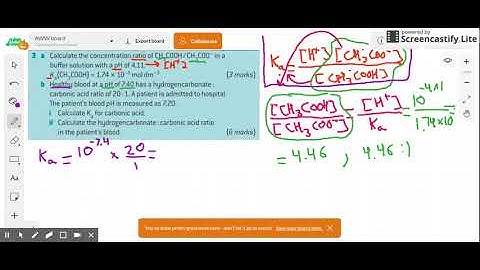 AWW board
Export board
Collaborate
powered by
Screencastify Lite
3 a Calculate the concentration ratio of CH₃COOH/CH₃COO⁻ in a
buffer solution with a pH of 4.11. → [H⁺] ?
Kₐ(CH₃COOH) = 1.74 × 10⁻⁵ mol dm⁻³ (3 marks)
b Healthy blood at a pH of 7.40 has a hydrogencarbonate :
carbonic acid ratio of 20 : 1. A patient is admitted to hospital.
The patient's blood pH is measured as 7.20.
i Calculate Kₐ for carbonic acid.
ii Calculate the hydrogencarbonate : carbonic acid ratio
in the patient's blood. (6 marks)
Kₐ = [H⁺] [CH₃COO⁻]
[CH₃COOH]
[CH₃COOH] = [H⁺] = 10⁻⁴·¹¹
[CH₃COO⁻] Kₐ 1.74×10⁻⁵
= 4.46 , 4.46 :)
Kₐ = 10⁻⁷·⁴ × 20 =
1